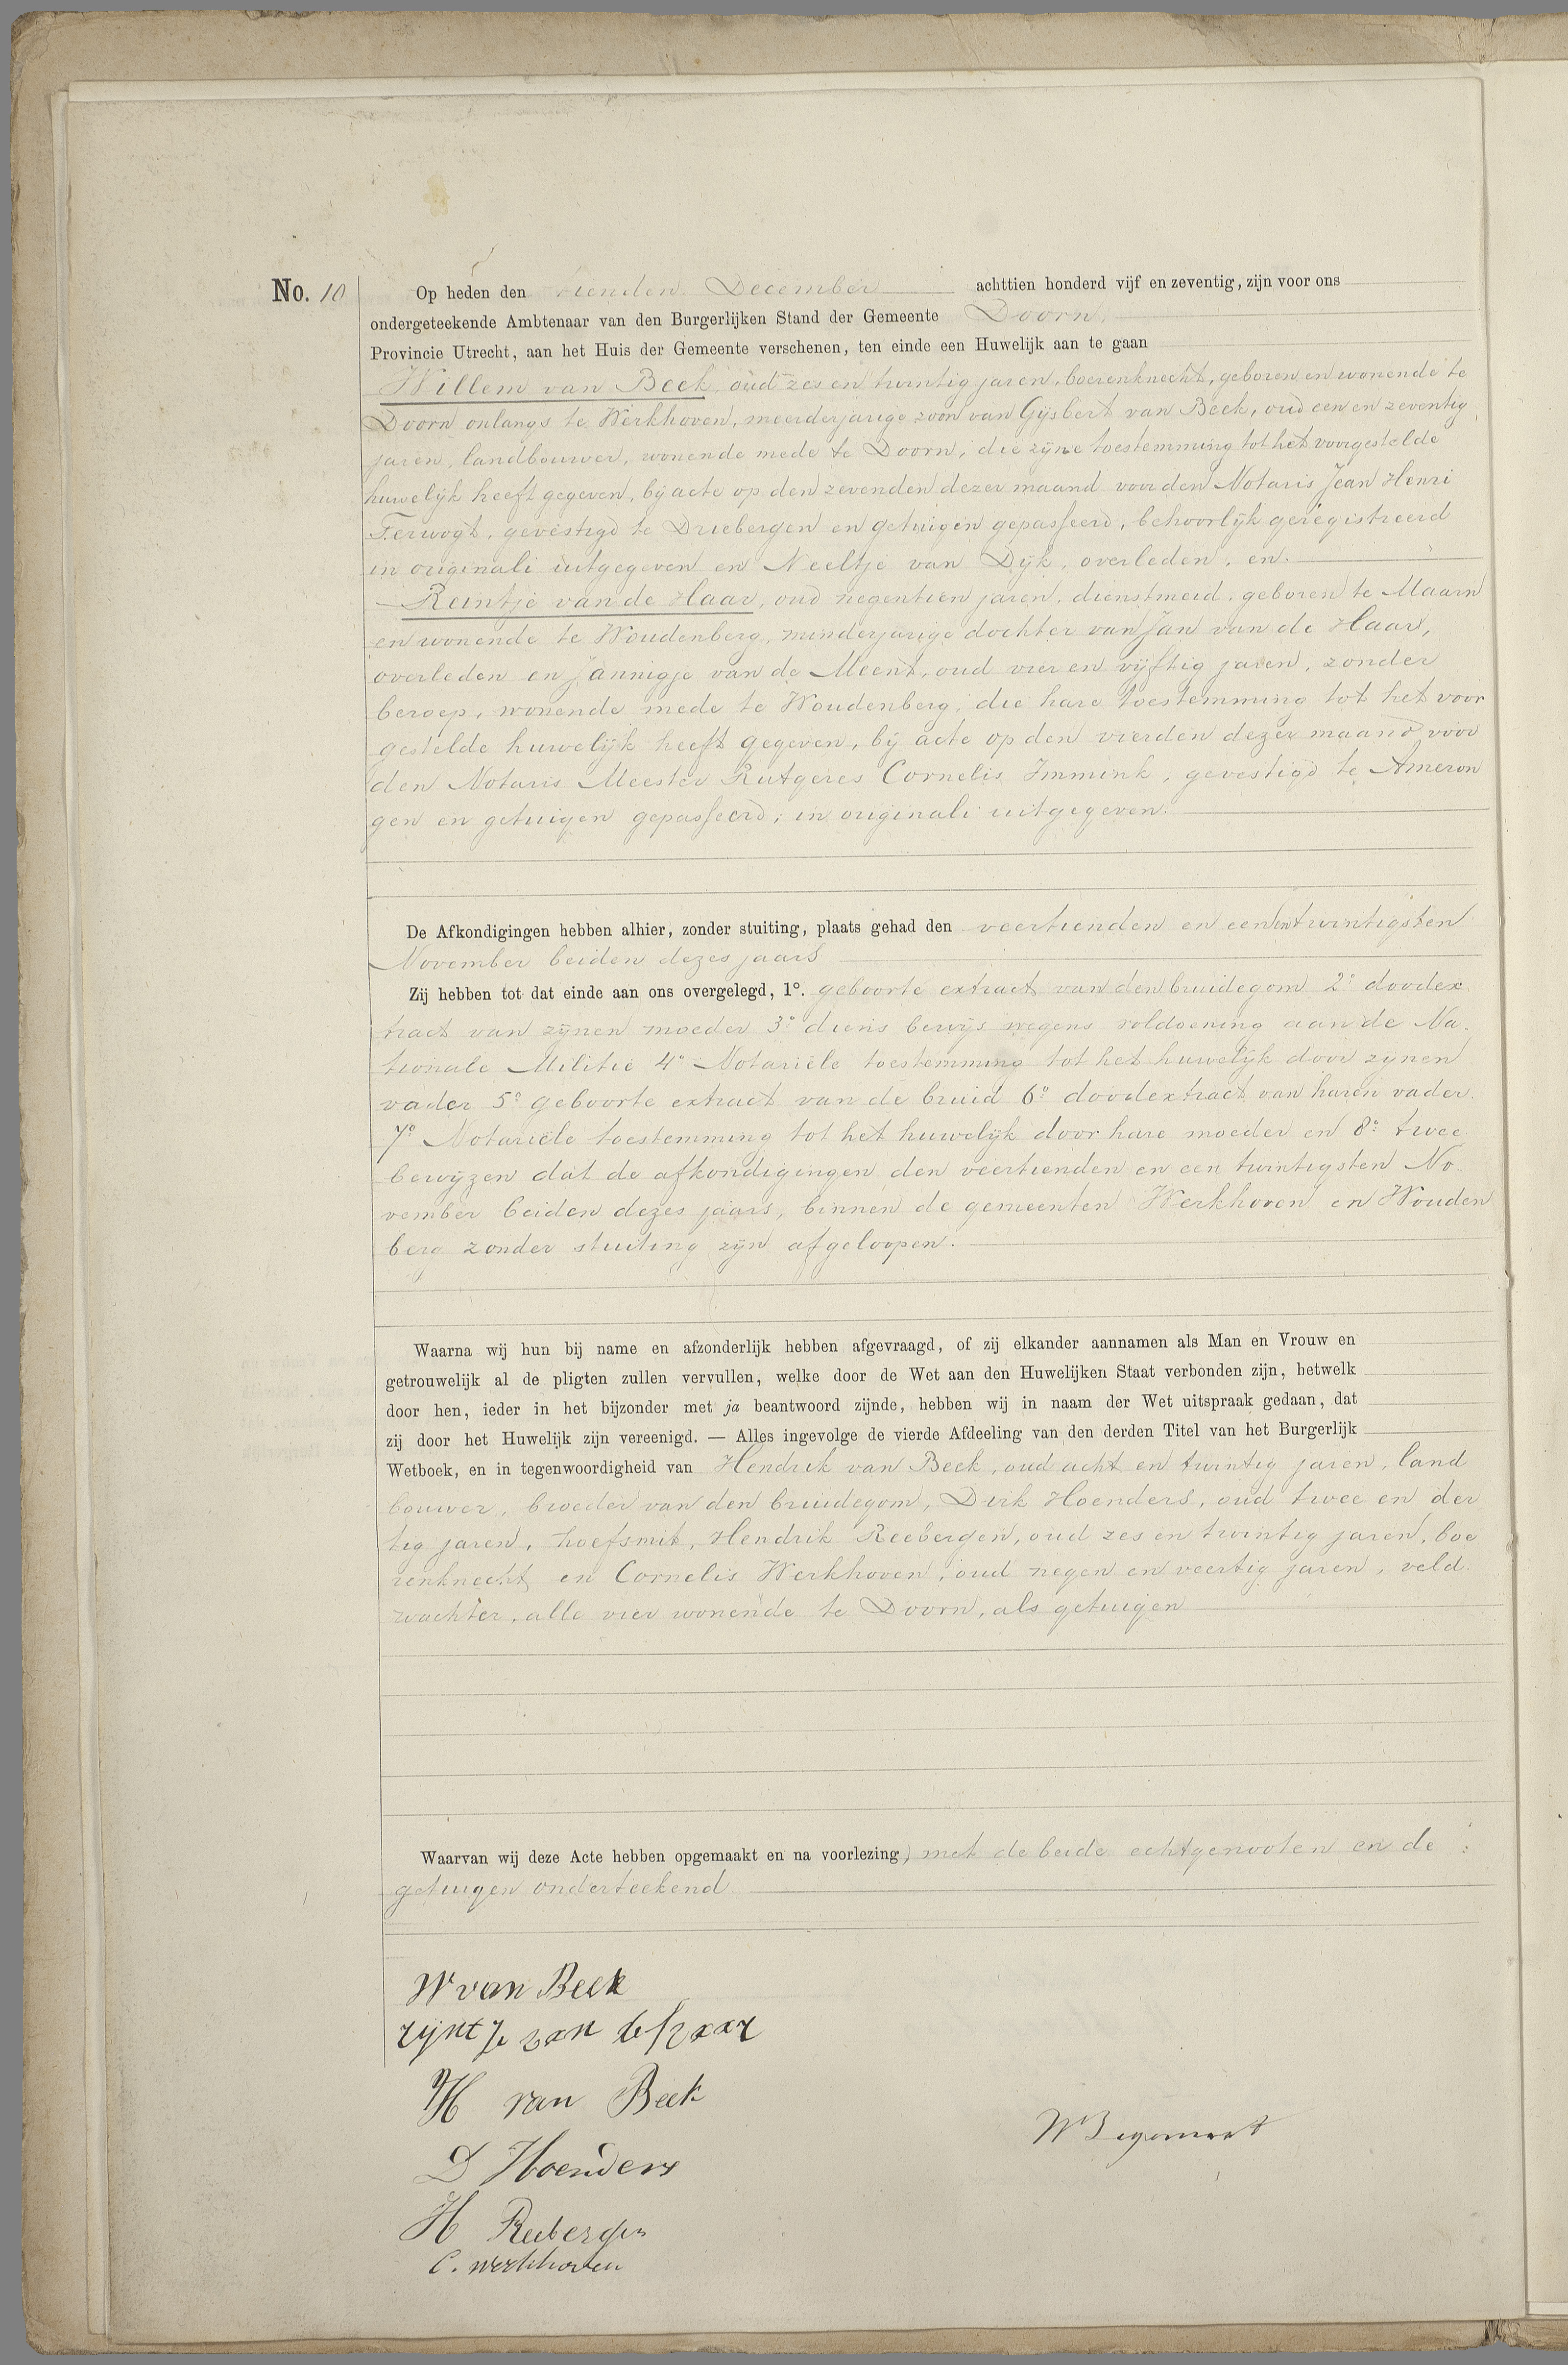 No. 10
Op heden den tienden December achttien honderd vijf en zeventig, zijn voor ons
ondergeteekende Ambtenaar van den Burgerlijken Stand der Gemeente Doorn,
Provincie Utrecht, aan het Huis der Gemeente verschenen, ten einde een Huwelijk aan te gaan
Willem van Beek, oud zes en twintig jaren, boerenknecht, geboren en wonende te
Doorn onlangs te Werkhoven, meerderjarige zoon van Gijsbert van Beek, oud een en zeventig
jaren, landbouwer, wonende mede te Doorn, die zijne toestemming tot het voorgestelde
huwelijk heeft gegeven, bij acte op den zevenden dezer maand voor den Notaris Jean Henri
gevestigd te Driebergen en getuigen gepasseerd, behoorlijk geregistreerd
in originali uitgegeven en Neeltje van Dijk, overleden, en.
Reintje van de Haar, oud negentien jaren, dienstmeid, geboren te Maarn
en wonende te Woudenberg, minderjarige dochter van Jan van de Haar,
overleden en Jannigje van de Meent, oud vier en vijftig jaren, zonder
beroep, wonende mede te Woudenberg, die hare toestemming tot het voor
gestelde huwelijk heeft gegeven, bij acte op den vierden dezer maand voor
den Notaris Meester Rutgeres Cornelis Immink, gevestigd te Ameron
gen en getuigen gepasseerd, in originali uitgegeven.
De Afkondigingen hebben alhier, zonder stuiting, plaats gehad den veertienden en een en twintigsten
November beiden dezes jaars
Zij hebben tot dat einde aan ons overgelegd, 1º. geboorte extract van den bruidegom 2º doodex
tract van zijnen moeder 3º diens bewijs wegens voldoening aan de Na.
tionale Militie 4º Notariële toestemming tot het huwelijk door zijnen
vader 5º geboorte extract van de bruid 6º doodextract van haren vader.
7º Notariële toestemming tot het huwelijk door hare moeder en 8º twee
bewijzen dat de afkondigingen den veertienden en een twintigsten No.
vember beiden dezes jaars, binnen de gemeenten Werkhoven en Wouden
berg zonder stuiting zijn afgeloopen.
Waarna wij hun bij name en afzonderlijk hebben afgevraagd, of zij elkander aannamen als Man en Vrouw en
getrouwelijk al de pligten zullen vervullen, welke door de Wet aan den Huwelijken Staat verbonden zijn, hetwelk
door hen, ieder in het bijzonder met ja beantwoord zijnde, hebben wij in naam der Wet uitspraak gedaan, dat
zij door het Huwelijk zijn vereenigd. — Alles ingevolge de vierde Afdeeling van den derden Titel van het Burgerlijk
Wetboek, en in tegenwoordigheid van Hendrik van Beek, oud acht en twintig jaren, land
bouwer, broeder van den bruidegom, Dirk Hoenders, oud twee en der
tig jaren, hoefsmit, Hendrik Reebergen, oud zes en twintig jaren, boe
renknecht en Cornelis Werkhoven, oud negen en veertig jaren, veld.
wachter, alle vier wonende te Doorn, als getuigen
Waarvan wij deze Acte hebben opgemaakt en na voorlezing, met de beide echtgenooten en de
getuigen onderteekend
W van Beek
rijntje van de haar
H van Beek
D Hoenders
H Reebergen
C. Werkhoven